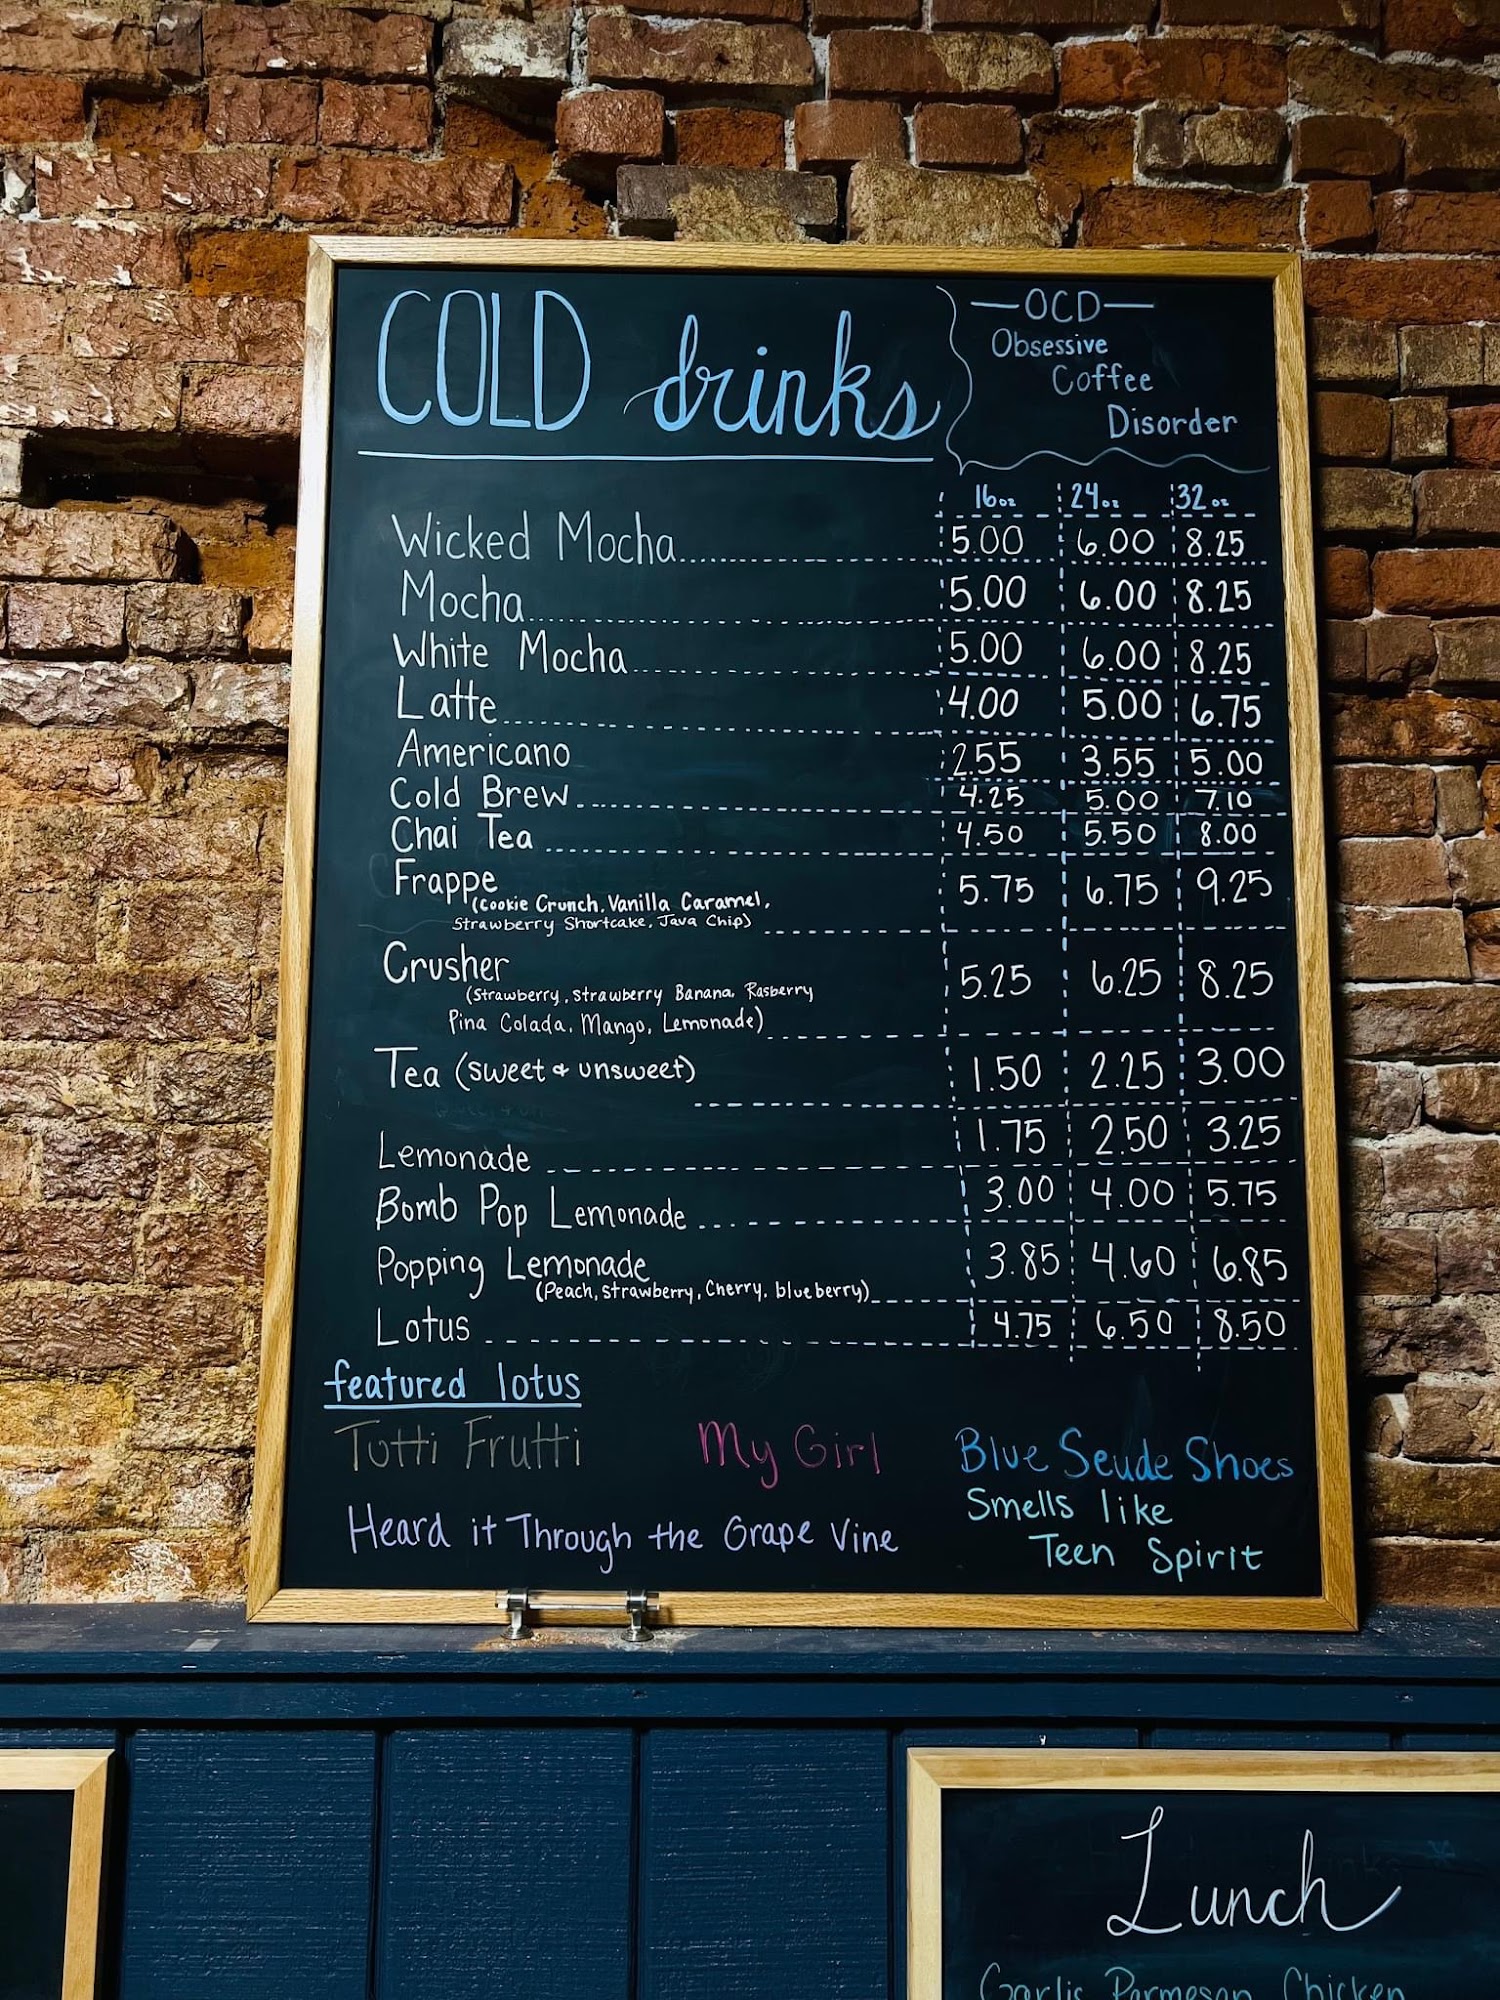 COLD drinks
—OCD—
Obsessive
Coffee
Disorder
16oz 24oz 32oz
Wicked Mocha 5.00 6.00 8.25
Mocha 5.00 6.00 8.25
White Mocha 5.00 6.00 8.25
Latte 4.00 5.00 6.75
Americano 2.55 3.55 5.00
Cold Brew 4.25 5.00 7.10
Chai Tea 4.50 5.50 8.00
Frappe 5.75 6.75 9.25
(Cookie Crunch, Vanilla Caramel,
Strawberry Shortcake, Java Chip)
Crusher 5.25 6.25 8.25
(Strawberry, Strawberry Banana, Rasberry
Pina Colada, Mango, Lemonade)
Tea (sweet & unsweet) 1.50 2.25 3.00
Lemonade 1.75 2.50 3.25
Bomb Pop Lemonade 3.00 4.00 5.75
Popping Lemonade 3.85 4.60 6.85
(Peach, Strawberry, Cherry, blueberry)
Lotus 4.75 6.50 8.50
featured lotus
Tutti Frutti
My Girl
Blue Seude Shoes
Heard it Through the Grape Vine
Smells like
Teen Spirit
Lunch
Garlic Parmesan Chicken